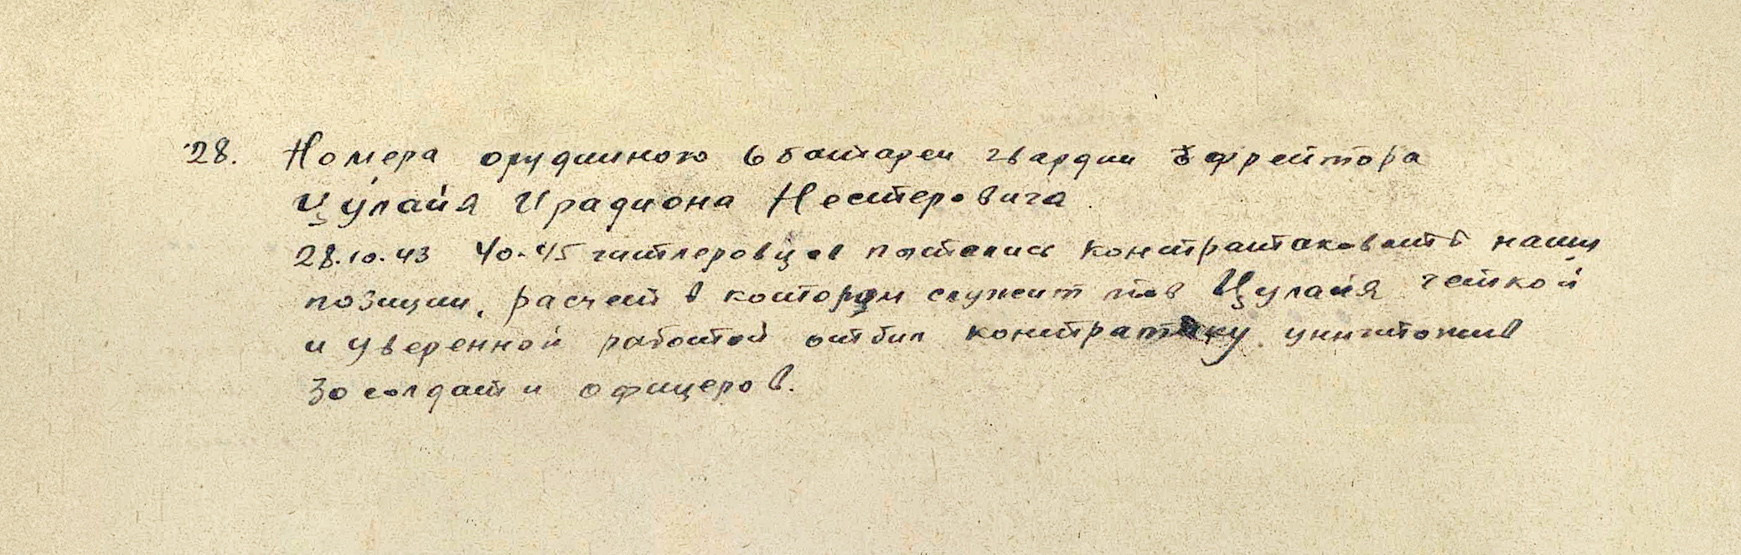 28. Номера орудийного 6 батареи гвардии ефрейтора
Цулайя Ирадиона Нестеровича
28.10.43 40-45 гитлеровцев пытались контратаковать наши
позиции, расчет в котором служит тов Цулайя четкой
и уверенной работой отбил контратаку уничтожив
30 солдат и офицеров.